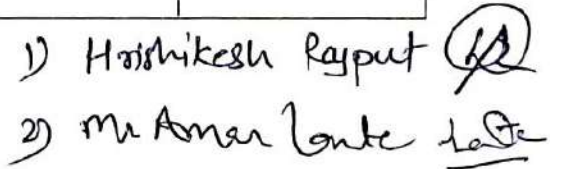 1) Hrishikesh Rajput
2) Mr Amar Lonte